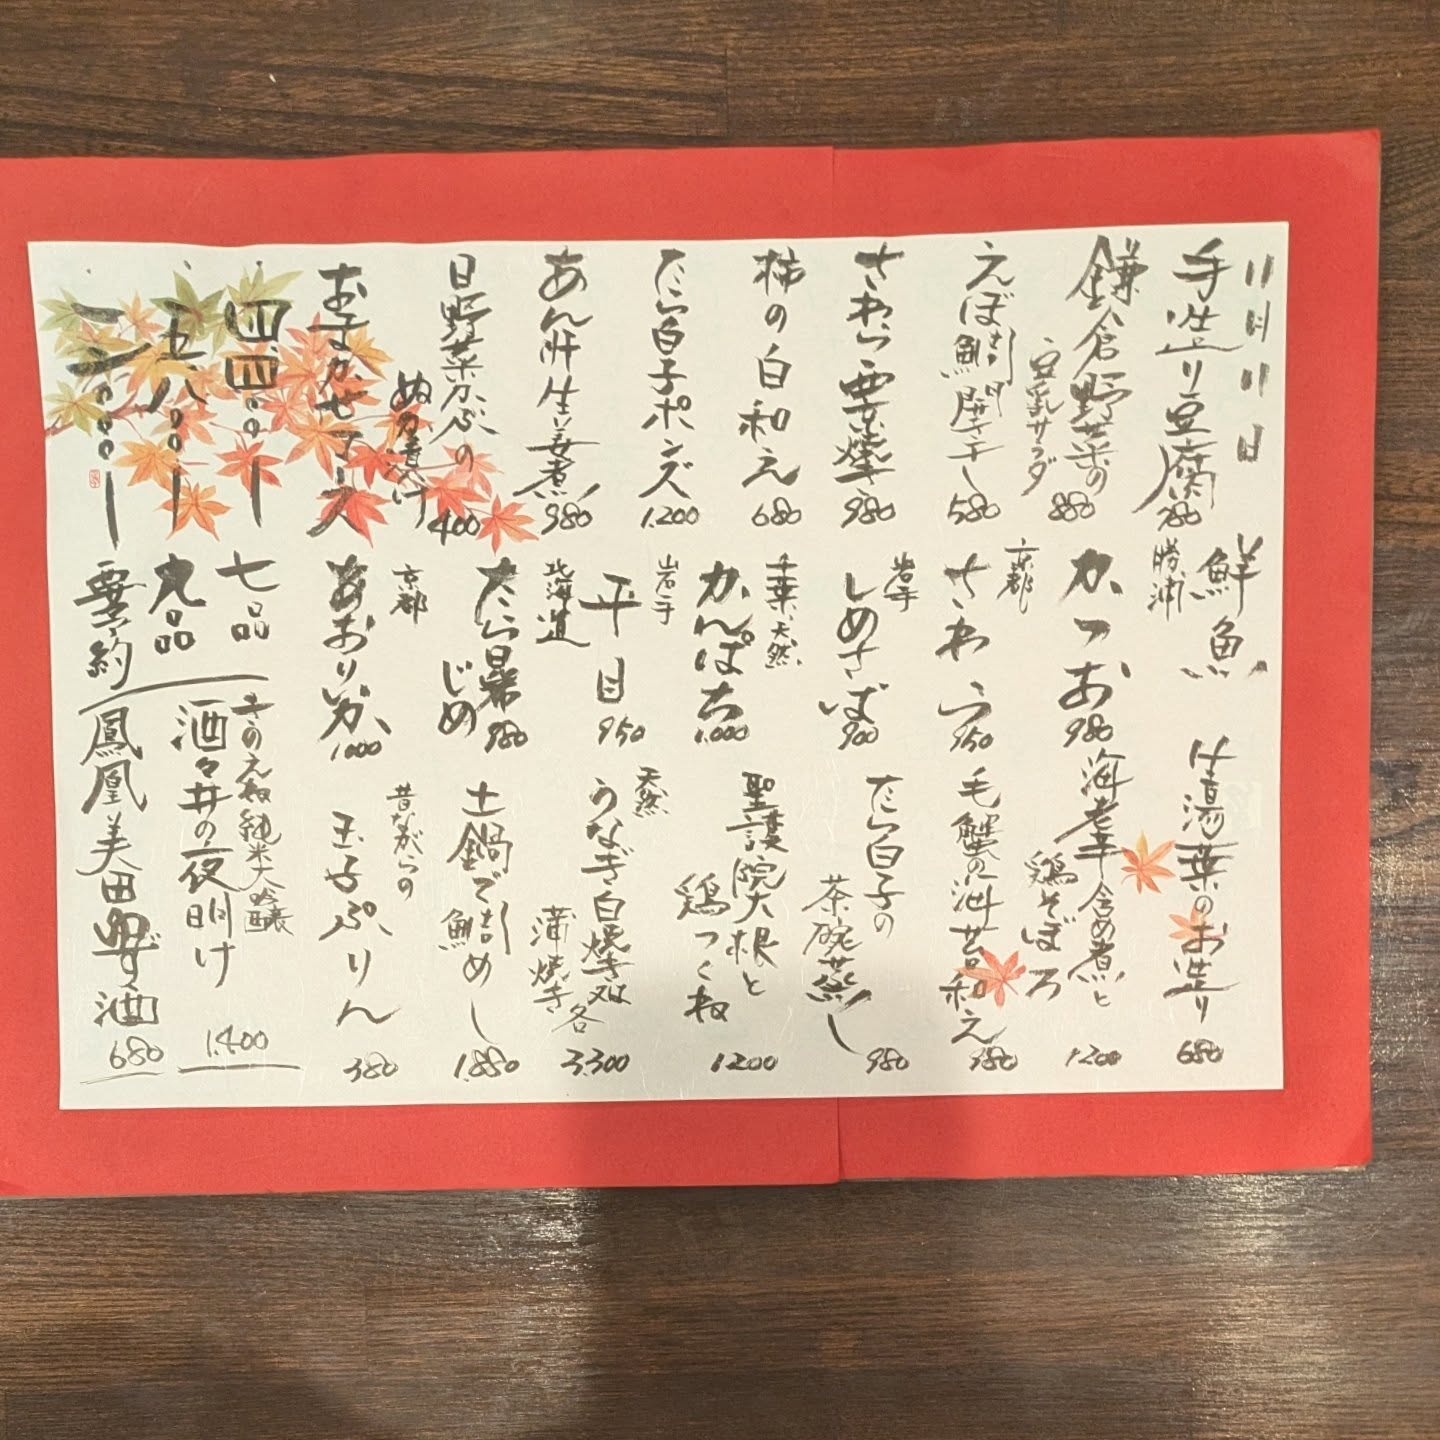 11月11日
手造り豆腐 780
鎌倉野菜の
豆乳サラダ 880
えぼ鯛開き干し 580
さわら西京焼き 980
柿の白和え 680
たら白子ポンズ 1.200
あん肝生姜煮 980
日野菜かぶの
ぬか漬け 400
おまかせコース
四、四〇〇ー 七品
五、八〇〇ー 九品
一二、〇〇〇ー 要予約
鮮魚
勝浦
かつお 980
京都
さわら 950
岩手
しめさば 900
千葉、天然
かんぱち 1.000
岩手
平目 950
北海道
たら昆布
じめ 980
京都
あおりいか 1000
汲湯葉のお造り 680
海老芋含め煮と
鶏そぼろ 1200
毛蟹の海苔和え 980
たら白子の
茶碗蒸し 980
聖護院大根と
鶏つくね 1200
天然
うなぎ白焼き又は
蒲焼き 各 3.300
土鍋で鯛めし 1.880
昔ながらの
玉子ぷりん 380
きのえね純米大吟醸
酒々井の夜明け 1.400
鳳凰美田ゆず酒 680